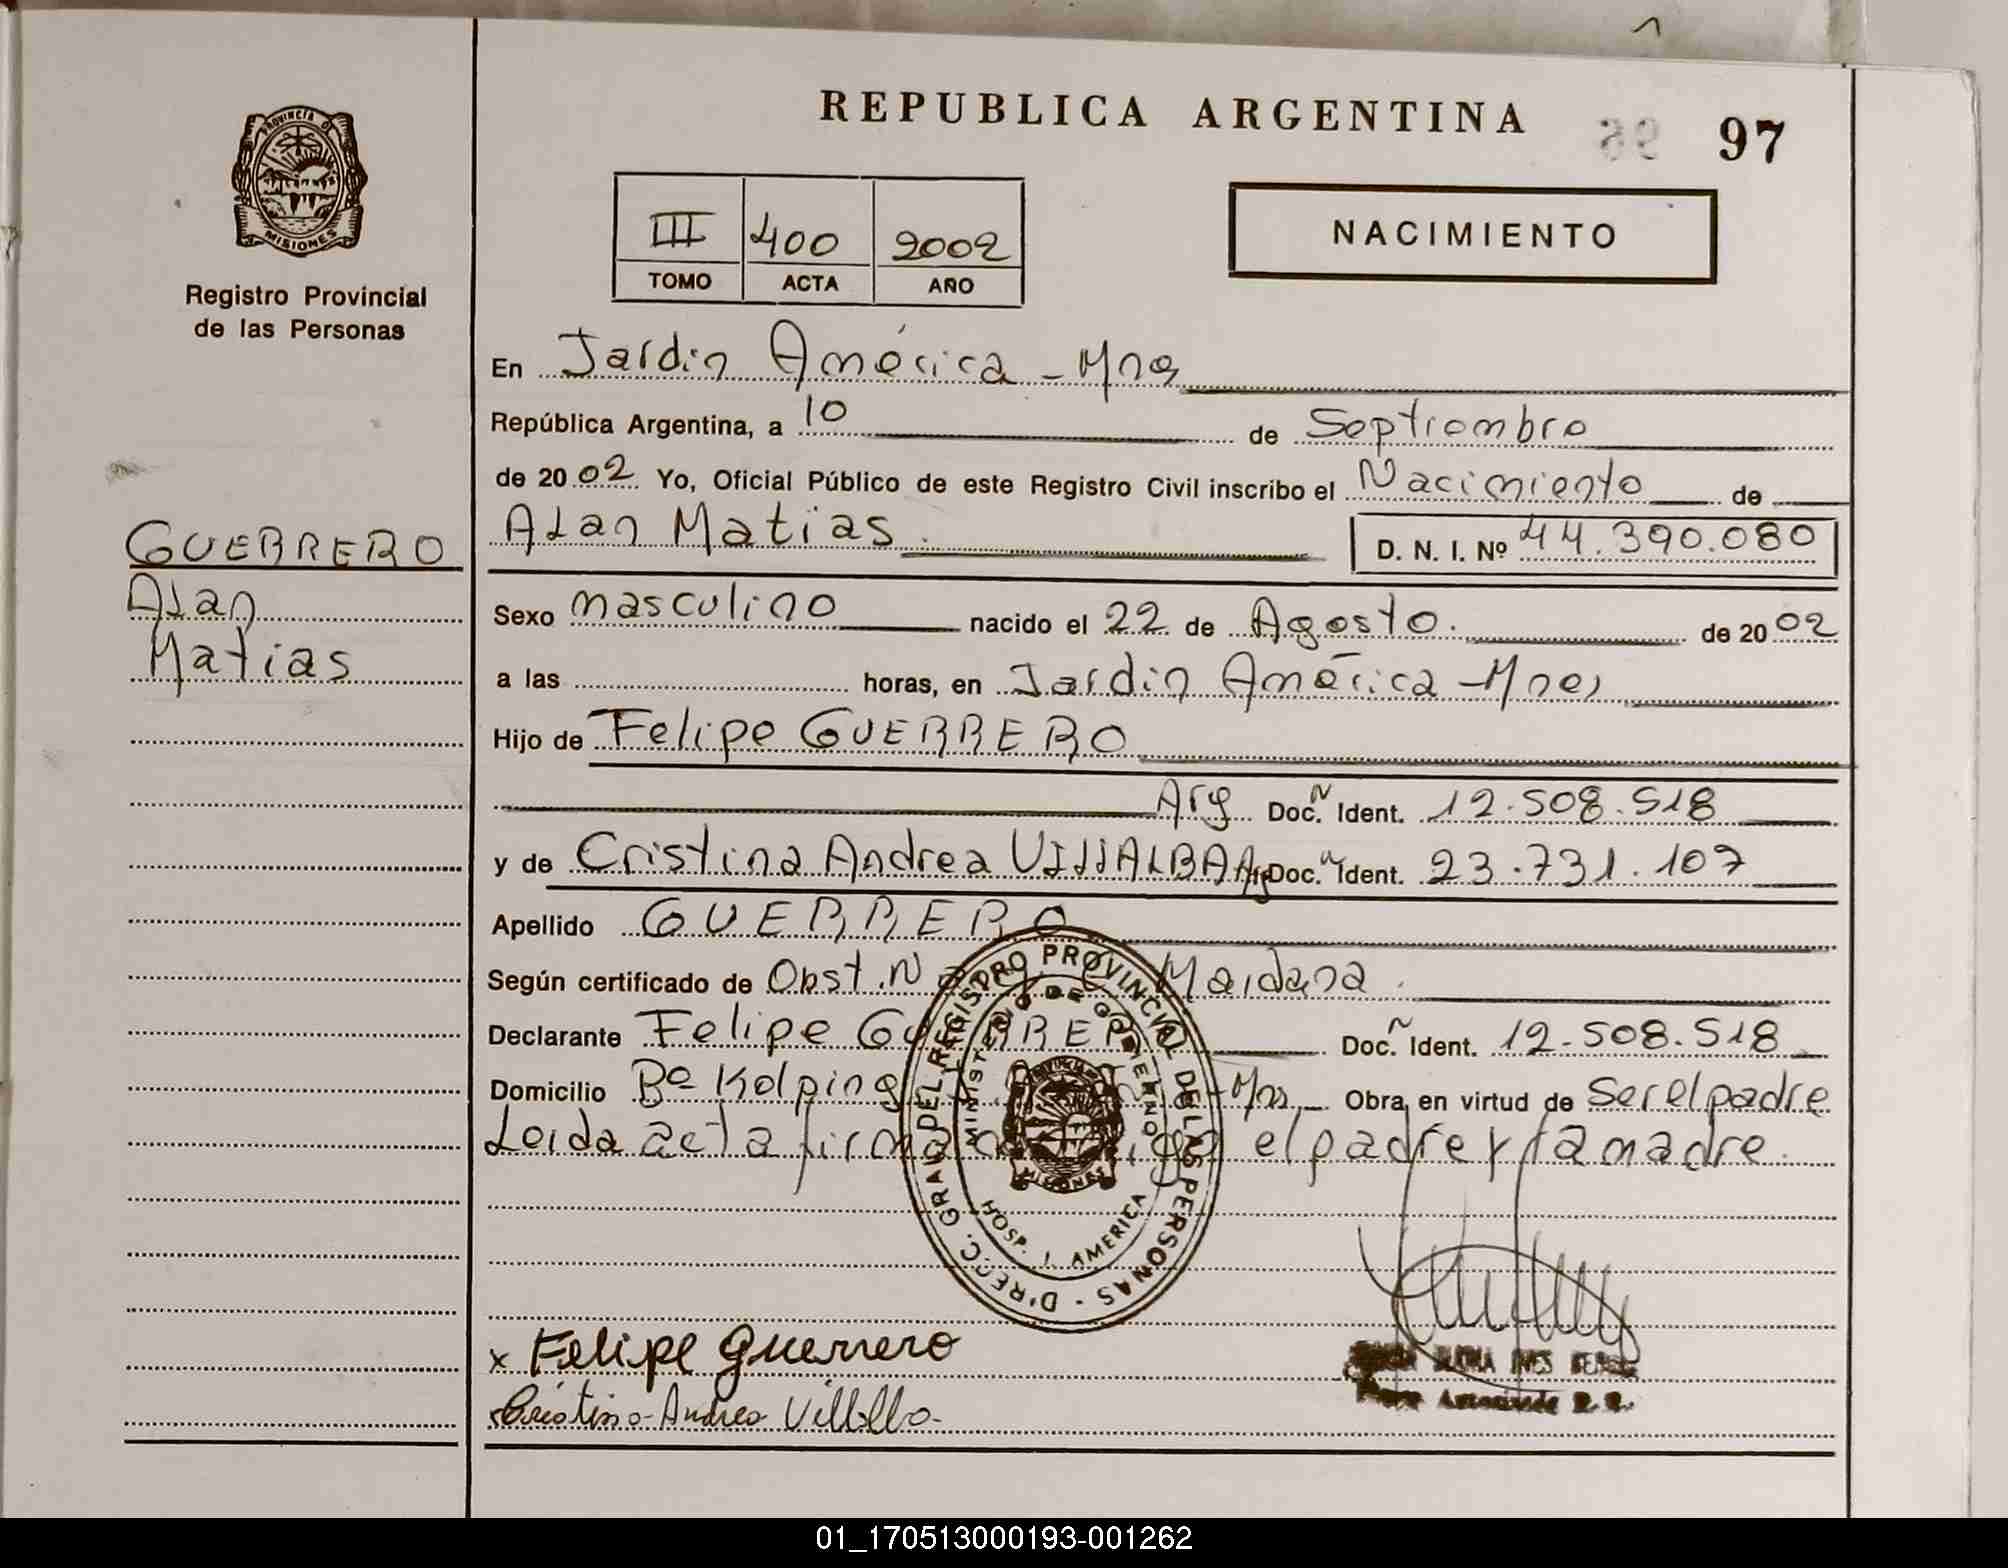 REPUBLICA ARGENTINA
96 97
PROVINCIA DE MISIONES
Registro Provincial
de las Personas
III 400 2002
TOMO ACTA AÑO
NACIMIENTO
En Jardin América - Mnes
República Argentina, a 10 de Septiembre
de 2002 Yo, Oficial Público de este Registro Civil inscribo el Nacimiento de
Alan Matias. D. N. I. Nº 44.390.080
GUERRERO
Alan
Matias
Sexo masculino nacido el 22 de Agosto. de 2002
a las horas, en Jardin América - Mnes
Hijo de Felipe GUERRERO
Arg Doc. Ident. 12.508.518
y de Cristina Andrea VILLALBA Arg Doc. Ident. 23.731.107
Apellido GUERRERO
Según certificado de Obst. Maidana.
Declarante Felipe GUERRERO Doc. Ident. 12.508.518
Domicilio Bº Kolping Mnes Obra en virtud de Ser el padre
Leida acta el padre y la madre.
DIREC. GRAL DEL REGISTRO PROVINCIAL DE LAS PERSONAS -
MINISTERIO DE GOBIERNO
MISIONES
HOSP. J. AMERICA
x Felipe Guerrero
Cristina Andrea Villalba
INES
01_170513000193-001262